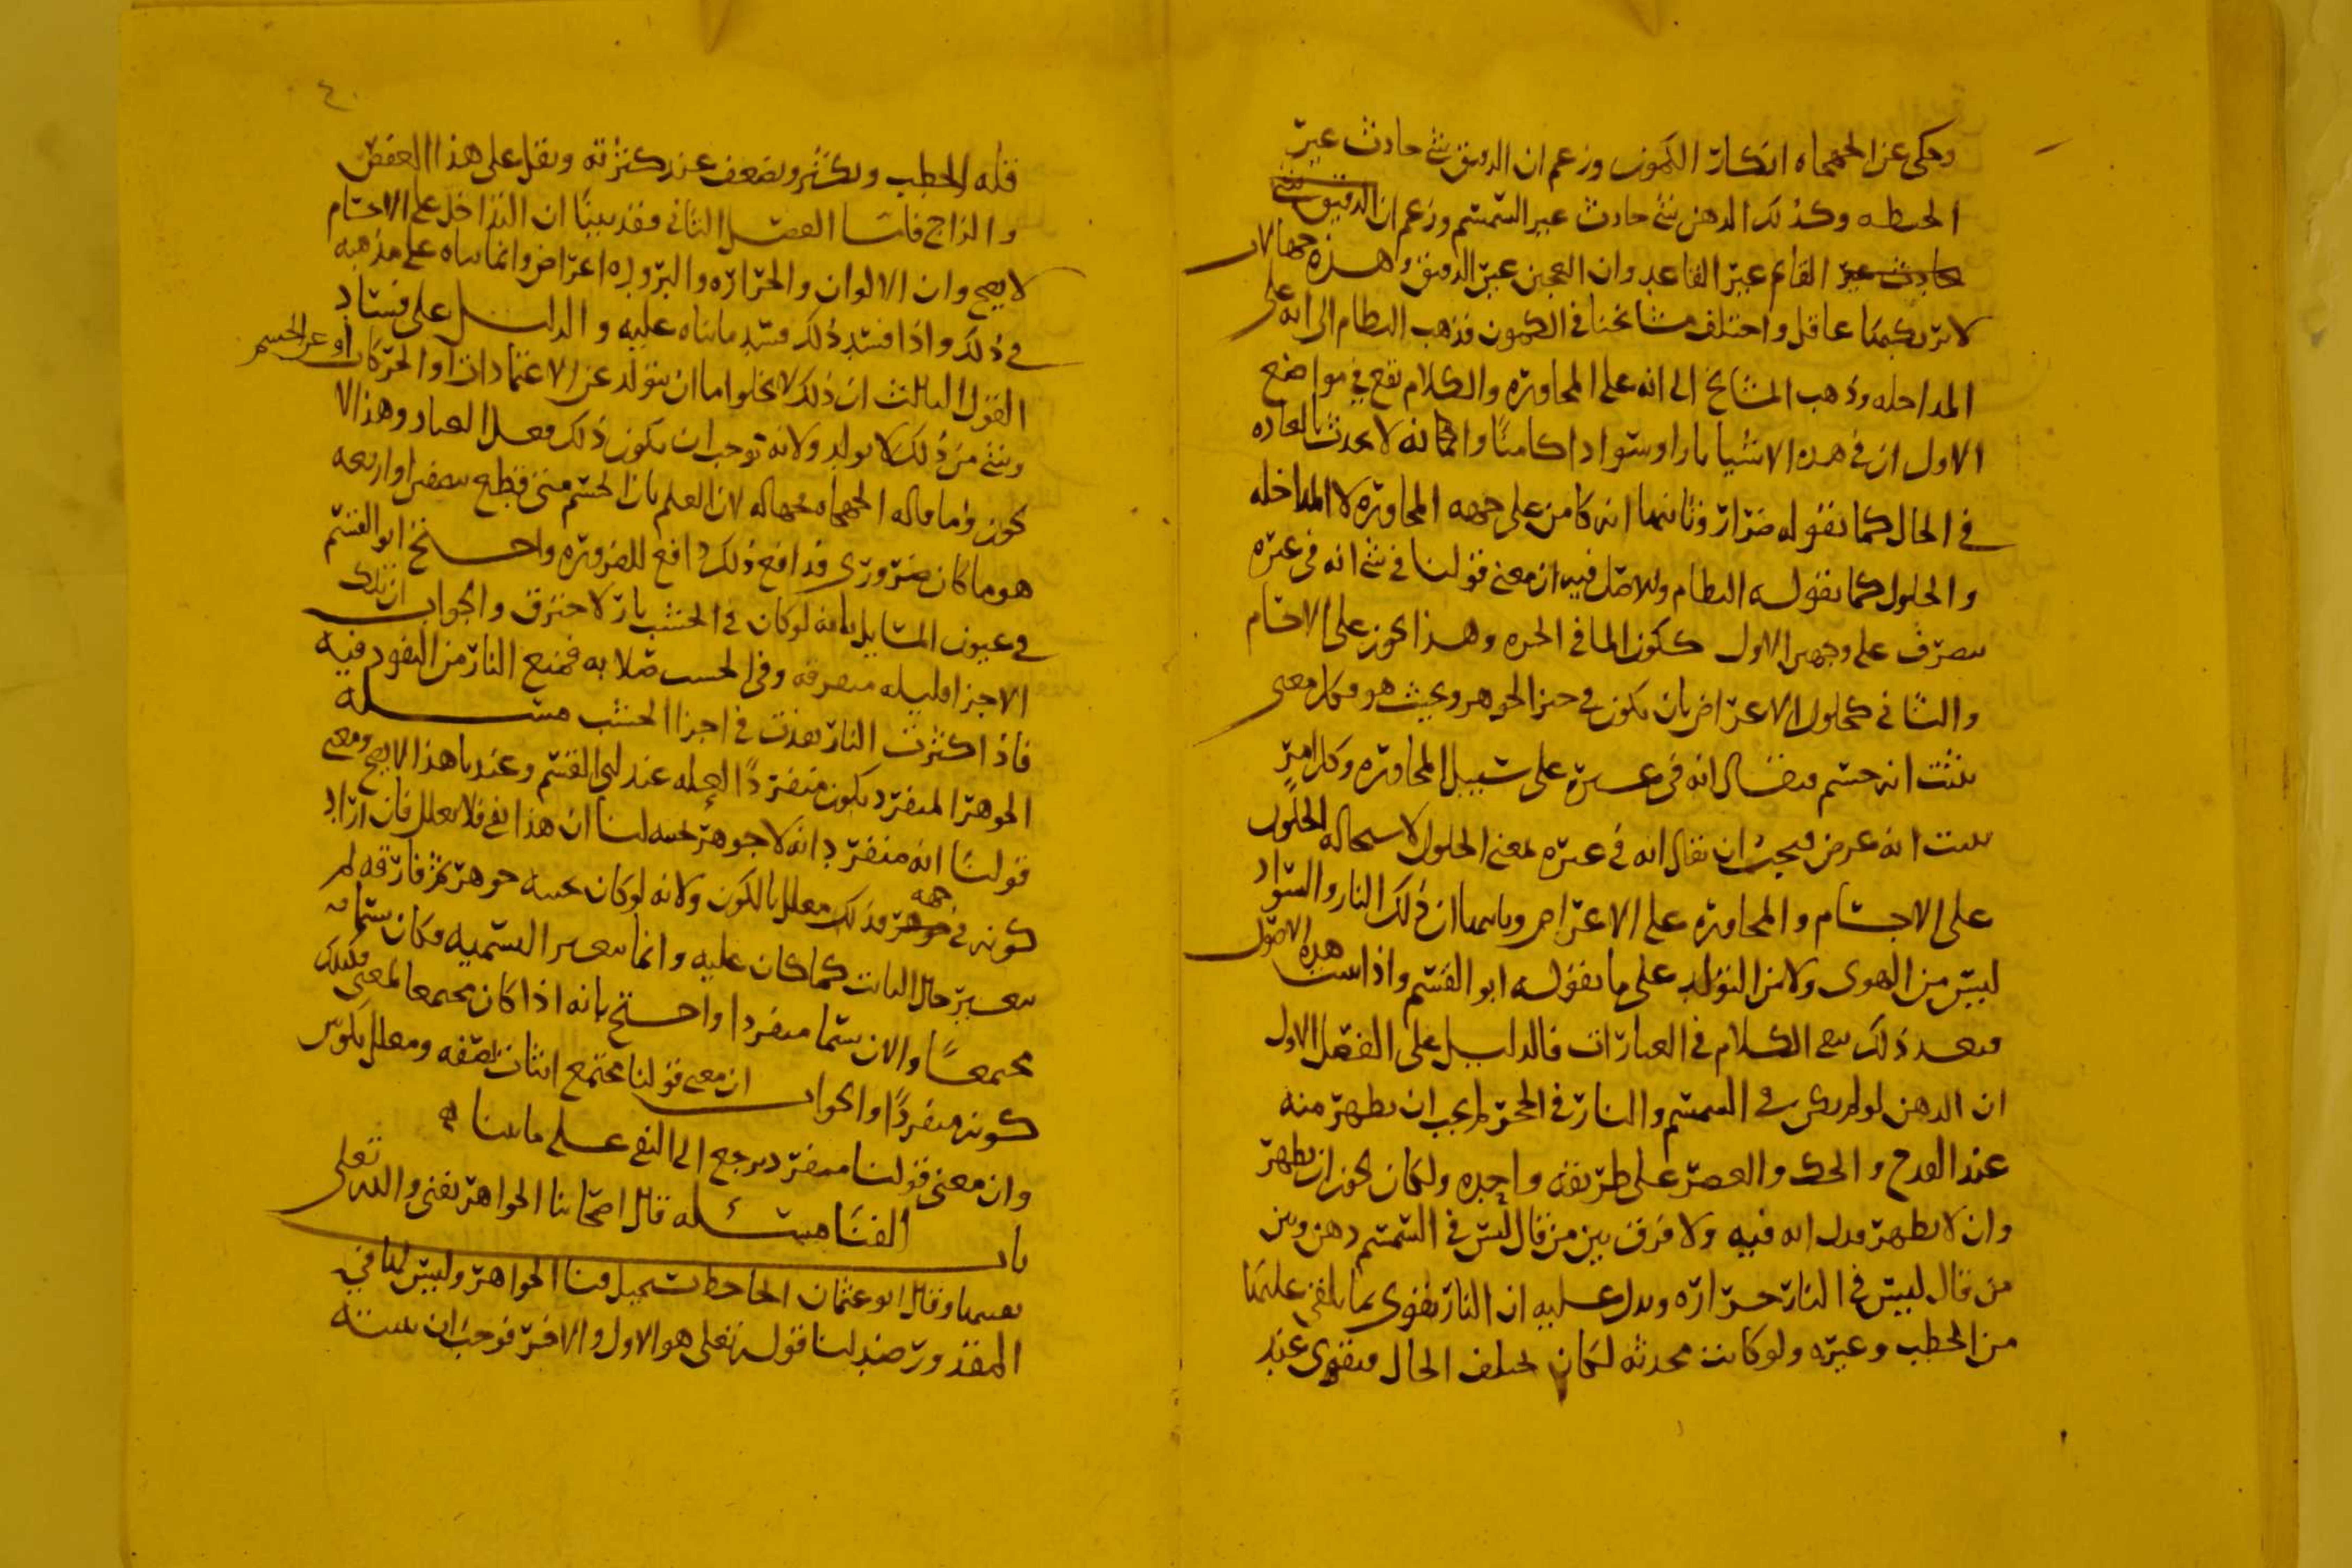 وحكى عن الجهماه انكار الكمون وزعم ان الدقيق شي حادث غير
الحنطه وكذلك الدهن شي حادث غير السمسم وزعم ان الدقيق شي
حادث غير القائم غير القاعد وان العجين غير الدقيق وهذه جهالات
لا يرتكبها عاقل واختلف مشائخنا في الكمون فذهب النظام الى انه على
المداخله وذهب المشائخ الى انه على المجاوره والكلام يقع في مواضع
الاول ان في هذه الاشيا نارا وسوادا كامنًا وانه لا يحدث بالعاده
في الحال كما يقوله ضرار وثانيها انه كامن على جهه المجاوره لا المداخله
والحلول كما يقوله النظام والاصل فيه ان معنى قولنا في شي انه في غيره
يتصرف على وجهين الاول ككون الما في الجره وهذا يجوز على الاجسام
والثاني كحلول الاعراض بان يكون في حيز الجوهر وبحيث هو فكل معنى
يثبت انه جسم فيقال انه في غيره على سبيل المجاوره وكل امر
يثبت انه عرض فيجب ان يقال انه في غيره لمعنى الحلول لاستحاله الحلول
على الاجسام والمجاوره على الاعراض وثالثها ان ذلك النار والسواد
ليس من الهوى ولا من التولد على ما يقوله ابو القسم واذا ثبت هذه الاصول
فبعد ذلك يبقى الكلام في العبارات فالدليل على الفصل الاول
ان الدهن لو لم يكن في السمسم والنار في الحجر لم يجب ان يظهر منه
عند القدح والحك والعصر على طريقه واحده ولكان يجوز ان يظهر
وان لا يظهر فدل انه فيه ولا فرق بين من قال ليس في السمسم دهن وبين
من قال ليس في النار حراره ويدل عليه ان النار تقوى بما يلقى عليها
من الحطب وغيره ولو كانت محدثه لكان لا يختلف الحال فتقوى عند
قله الحطب ويكثر ويضعف عند كثرته ونقل على هذا العفص
والزاج فاما الفصل الثاني فقد بينا ان التداخل على الاجسام
لا يصح وان الالوان والحراره والبروده اعراض وانما بناه على مذهبه
في ذلك واذا فسد ذلك فسد ما بناه عليه والدليل على فساد
القول الثالث ان ذلك لا يخلوا اما ان يتولد عن الاعتمادات او الحركات او عن الجسم
وشي من ذلك لا يولد ولانه توجب ان يكون ذلك فعل العباد وهذا لا
يجوز واما ما قاله الجهماه فجهاله لان العلم بان الجسم متى قطع نصفين او اربعه
هو ما كان ضروري فدافع ذلك دافع للضروره واحتج ابو القسم
في عيون المسايل بانه لو كان في الخشب نار لاحترق والجواب ان تلك
الاجزا قليله متفرقه وفي الخشب صلابه فيمنع النار من النفود فيه
فاذا كثرت النار نفذت في اجزا الخشب مسئله
الجوهر المنفرد يكون منفردًا لعله عند ابي القسم وعندنا هذا لا يصح ومعنى
قولنا انه منفرد انه لا جوهر بجنبه لنا ان هذا نفي فلا يعلل فان اراد
كونه في جوهر جهه فذلك معلل بالكون ولانه لو كان بجنبه جوهر ثم فارقه لم
يتغير حال الثابت كما كان عليه وانما يتغير التسميه فكان يسمى
مجتمعًا والان يسما منفردا واحتج بانه اذا كان مجتمعا لمعنى فكذلك
كونه منفردًا والجواب ان معنى قولنا مجتمع اثبات لصفه ومعلل بكون
وان معنى قولنا منفرد يرجع الى النفي على ما بينا
باب الفنا مسئله قال اصحابنا الجواهر يفنى والله تعلى
يفنيها وقال ابو عثمان الجاحظ يستحيل فنا الجواهر وليس لنا في
المقدور ضد لنا قوله تعلى هو الاول والاخر فوجب ان نثبته